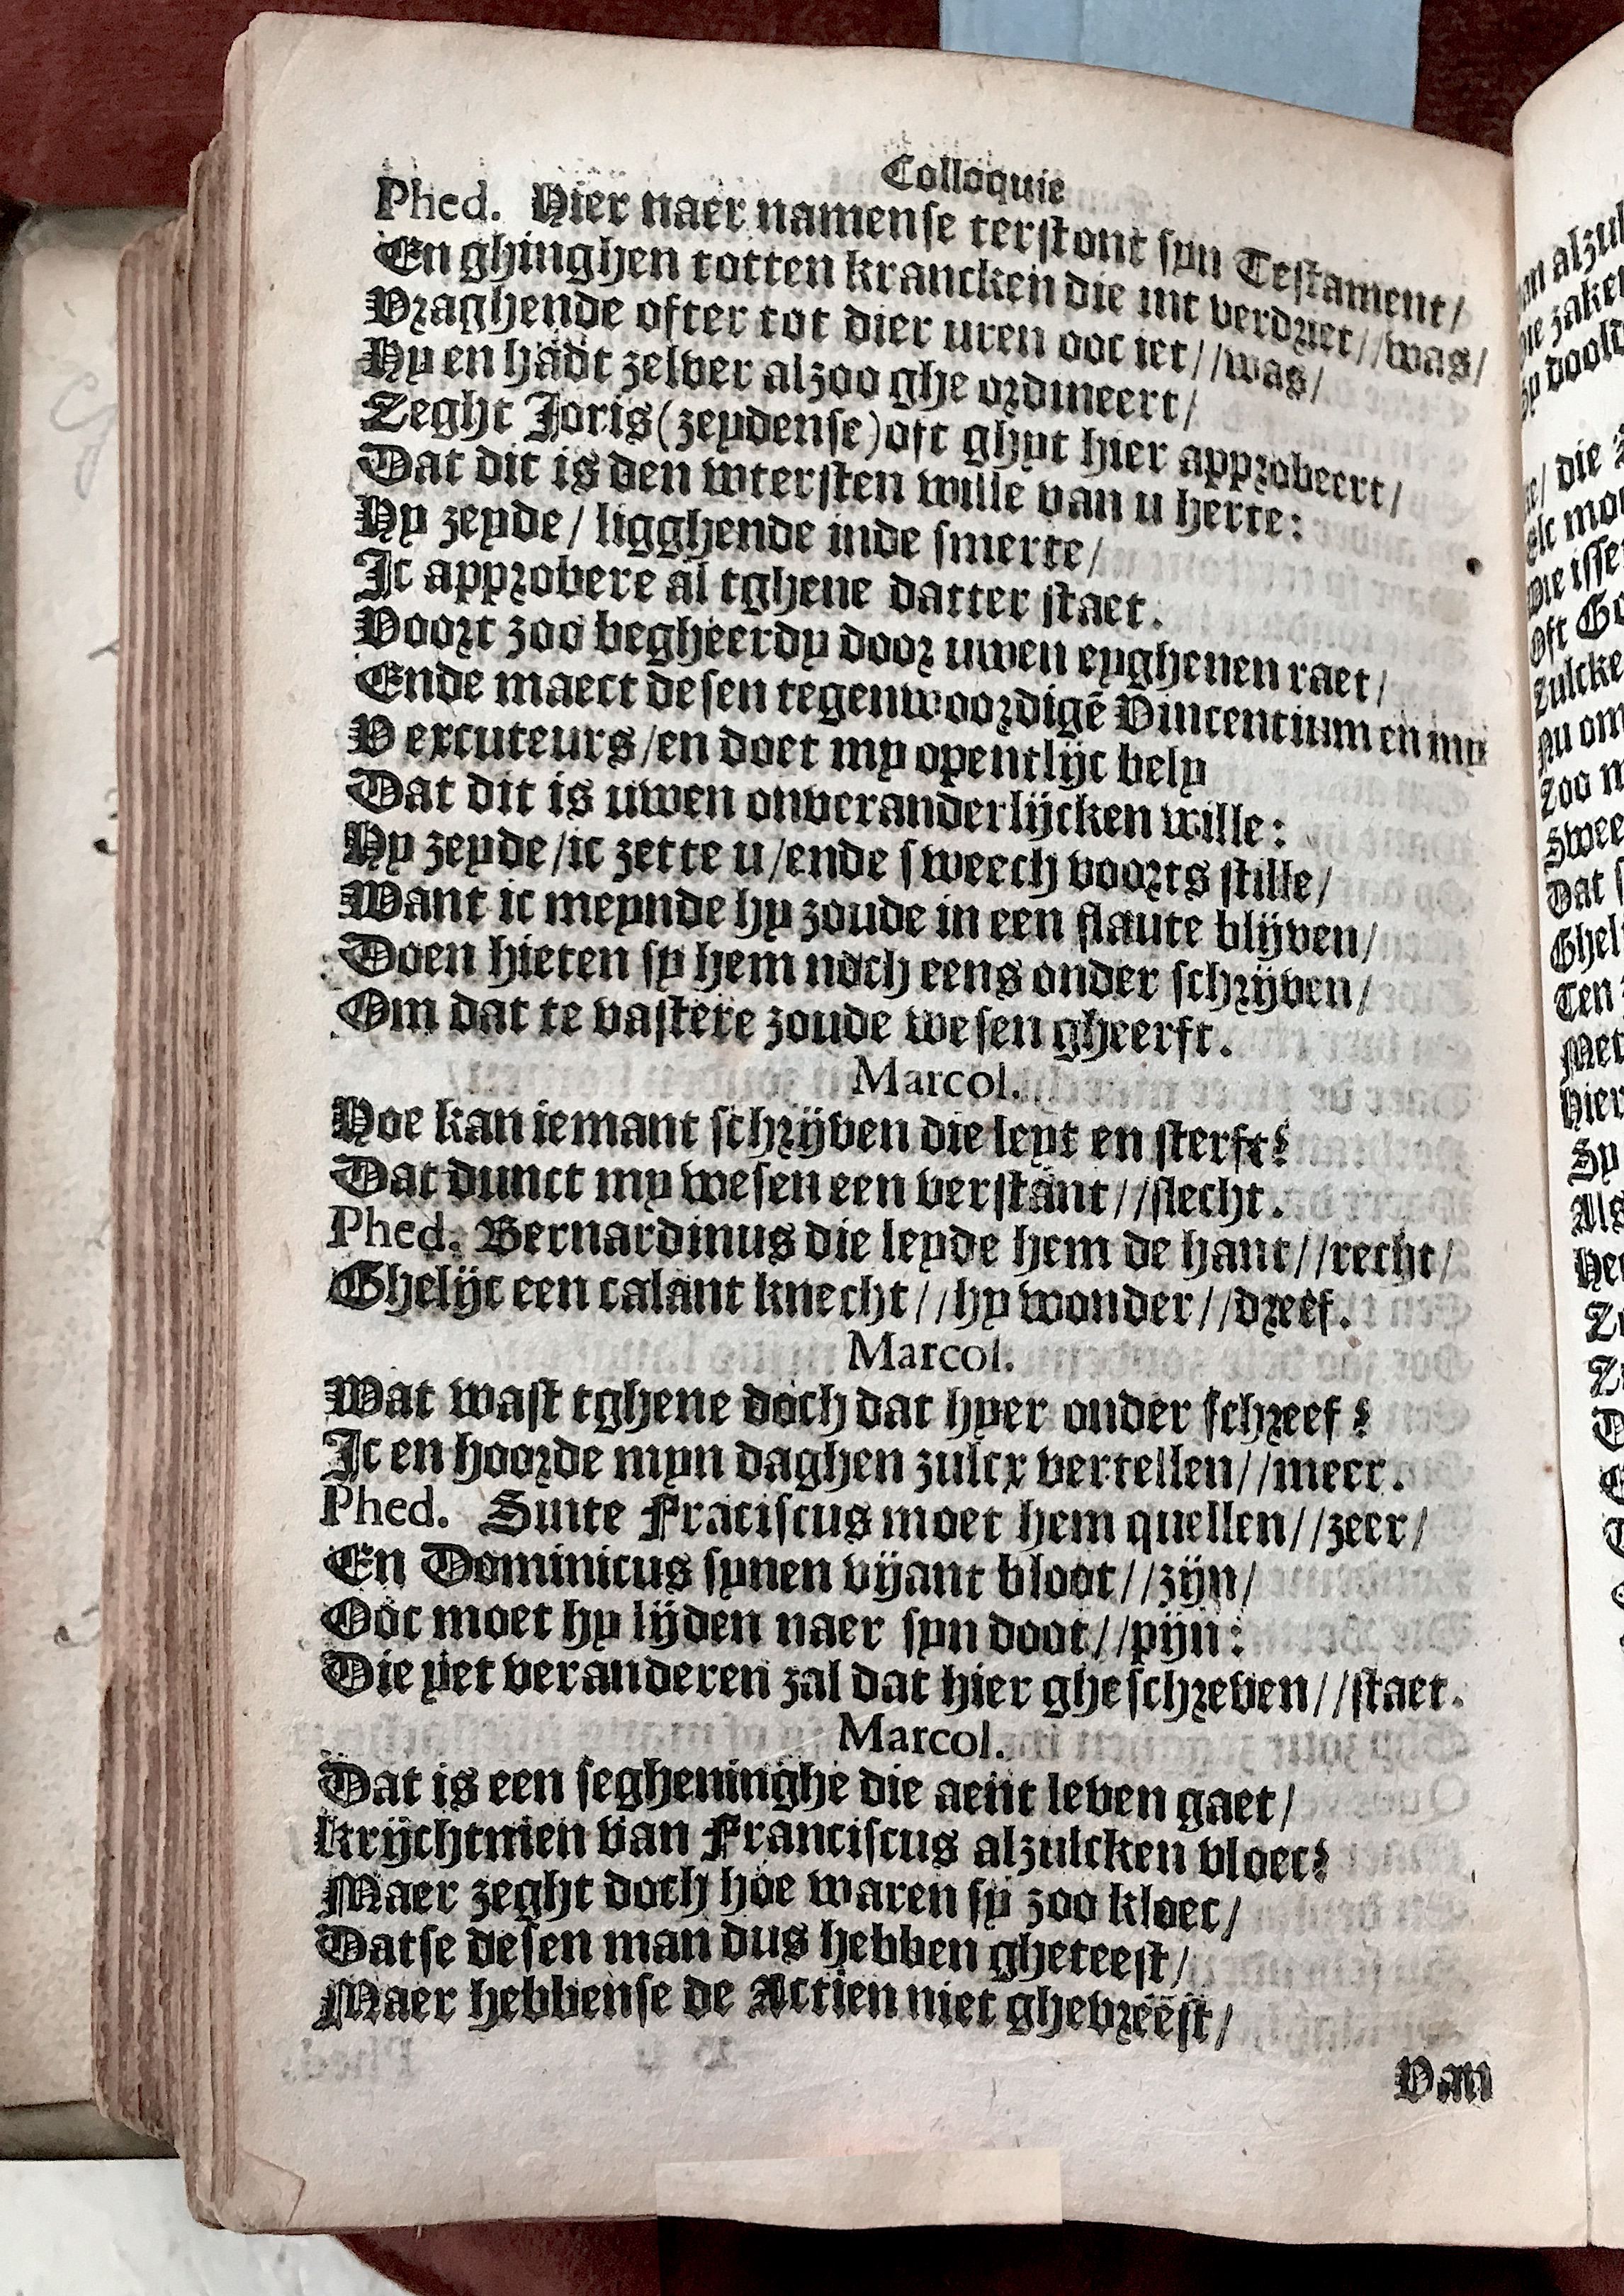 Colloquie
Phed. Hier naer namense terstont syn Testament/
En ghinghen totten krancken die int verdriet//was/
Vraghende ofter tot dier uren ooc iet//was/
Hy en hadt zelver alzoo ghe ordineert/
Zeght Joris(zeydense)oft ghyt hier approbeert/
Dat dit is den wtersten wille van u herte:
Hy zeyde/ ligghende inde smerte/
Ic approbere al tghene datter staet.
Voort zoo begheerdy door uwen eyghenen raet/
Ende maect desen tegenwoordigē Vincentium en my
V executeurs/en doet my opentlijc bely
Dat dit is uwen onveranderlijcken wille:
Hy zeyde/ic zette u/ende sweech voorts stille/
Want ic meynde hy zoude in een flaute blijven/
Doen hieten sy hem noch eens onder schrijven/
Om dat te vastere zoude wesen gheerft.
Marcol.
Hoe kan iemant schrijven die leyt en sterft?
Dat dunct my wesen een verstant//slecht.
Phed. Bernardinus die leyde hem de hant//recht/
Ghelijc een calant knecht//hy wonder//dreef.
Marcol.
Wat wast tghene doch dat hyer onder schreef?
Ic en hoorde myn daghen zulcx vertellen//meer.
Phed. Sinte Fraciscus moet hem quellen//zeer/
En Dominicus synen vijant bloot//zijn/
Ooc moet hy lijden naer syn doot//pijn:
Die yet veranderen zal dat hier gheschreven//staet.
Marcol.
Dat is een segheninghe die aent leven gaet/
Krijchtmen van Franciscus alzulcken vloec?
Maer zeght doch hoe waren sy zoo kloec/
Datse desen man dus hebben gheteest/
Maer hebbense de Actien niet ghevreest/
Van